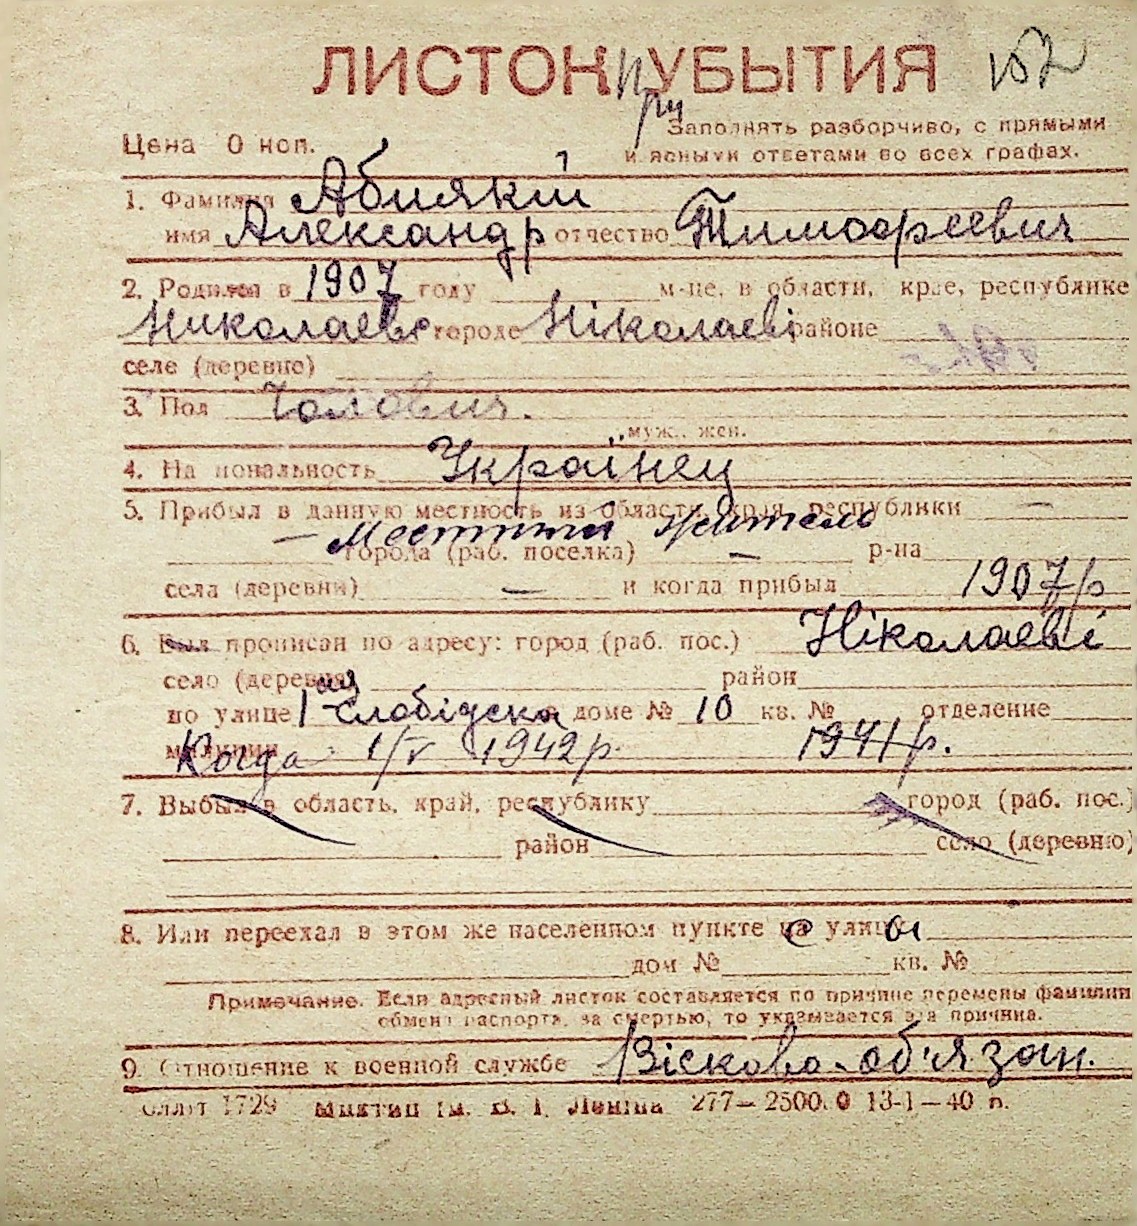 ЛИСТОК УБЫТИЯ
при
Заполнять разборчиво, с прямыми
Цена 0 коп.
и ясными ответами во всех графах.
1. Фамилия Абиякій
имя Александр отчество Тимофеевич
2. Родился в 1907 году м-це, в области, крае, республике
Николаевс городе Ніколаеві районе
селе (деревне)
3. Пол Чолович.
муж., жен.
4. Национальность Україінец
5. Прибыл в данную местность из области, края, республики —
— Местный житель
города (раб. поселка) — р-на
села (деревни) — и когда прибыл 1907 р
6. Был прописан по адресу: город (раб. пос.) Ніколаеві
село (деревня) район
по улице 1ая Слобідска в доме № 10 кв. № отделение
милиции Когда 1/V 1942 р. 1941 р.
7. Выбыл в область, край, республику город (раб. пос.)
район село (деревню)
8. Или переехал в этом же населенном пункте с улицы
дом № кв. №
Примечание. Если адресный листок составляется по причине перемены фамилии
обмена паспорта, за смертью, то указывается эта причина.
9. Отношение к военной службе Віськово-об'язан.
1729 Миктип ім. В. І. Леніна 277—2500.0 13-I—40 р.